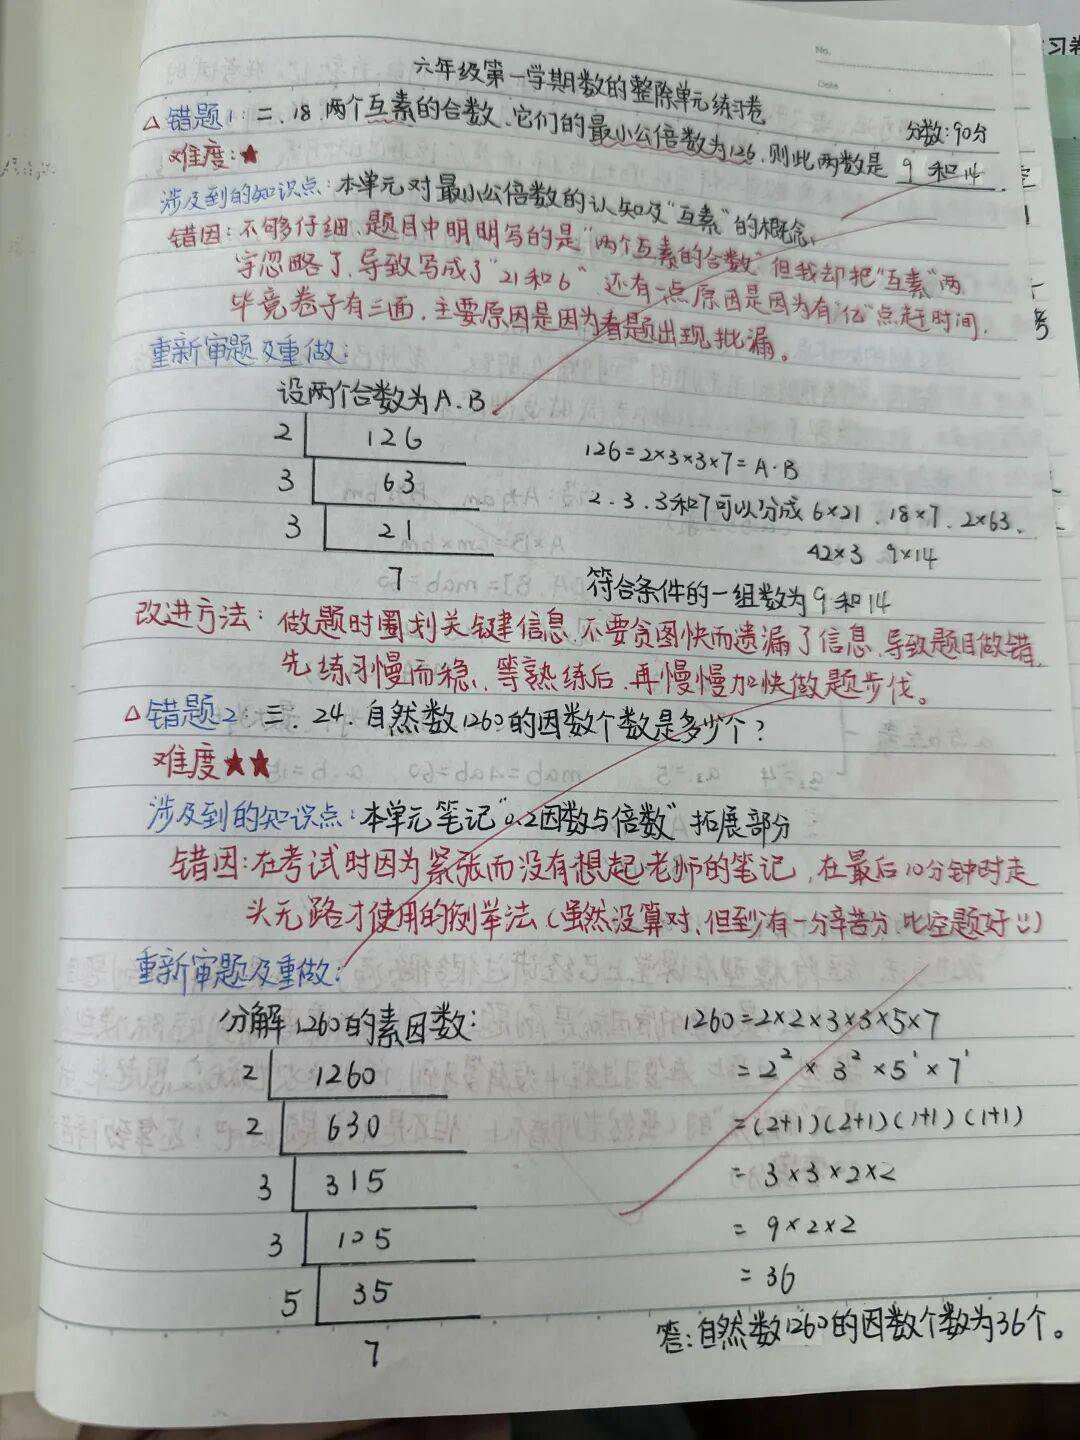 No.
Date
习卷
六年级第一学期数的整除单元练习卷
分数:90分
△错题1:二、18.两个互素的合数、它们的最小公倍数为126,则此两数是 9 和14.
难度:★
涉及到的知识点:本单元对最小公倍数的认知及“互素”的概念、
错因:不够仔细、题目中明明写的是“两个互素的合数”但我却把“互素”两
字忽略了,导致写成了“21和6”还有一点原因是因为有“亿”点赶时间,
毕竟卷子有三面,主要原因是因为看题出现批漏。
重新审题及重做:
设两个合数为A、B
2 126
3 63
3 21
7
126=2×3×3×7=A·B
2、3、3和7可以分成 6×21、18×7、2×63、
42×3 9×14
符合条件的一组数为9和14
改进方法:做题时圈划关键信息,不要贪图快而遗漏了信息,导致题目做错,
先练习慢而稳、等熟练后,再慢慢加快做题步伐。
△错题2:三、24.自然数1260的因数个数是多少个?
难度★★
涉及到的知识点:本单元笔记“0.2因数与倍数”拓展部分
错因:在考试时因为紧张而没有想起老师的笔记,在最后10分钟时走
头无路才使用的例举法(虽然没算对,但至少有一分辛苦分,比空题好:))
重新审题及重做:
分解1260的素因数:
2 1260
2 630
3 315
3 105
5 35
7
1260=2×2×3×3×5×7
=2²×3²×5¹×7¹
=(2+1)(2+1)(1+1)(1+1)
=3×3×2×2
=9×2×2
=36
答:自然数1260的因数个数为36个。